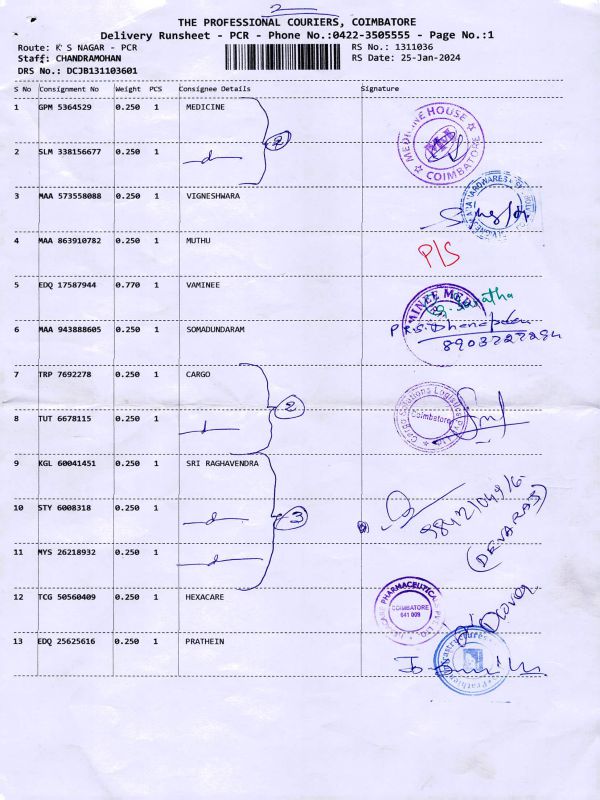 2
THE PROFESSIONAL COURIERS, COIMBATORE
Delivery Runsheet - PCR - Phone No.:0422-3505555 - Page No.:1
Route: K S NAGAR - PCR RS No.: 1311036
Staff: CHANDRAMOHAN RS Date: 25-Jan-2024
DRS No.: DCJB131103601
S No Consignment No Weight PCS Consignee Details Signature
1 GPM 5364529 0.250 1 MEDICINE
MEDICINE HOUSE COIMBATORE
2 SLM 338156677 0.250 1
3 MAA 573558088 0.250 1 VIGNESHWARA
4 MAA 863910782 0.250 1 MUTHU P/S
5 EDQ 17587944 0.770 1 VAMINEE
6 MAA 943888605 0.250 1 SOMADUNDARAM
8903727294
7 TRP 7692278 0.250 1 CARGO
2
Coimbatore
8 TUT 6678115 0.250 1
9 KGL 60041451 0.250 1 SRI RAGHAVENDRA
10 STY 6008318 0.250 1
3
(DEVARAJ)
11 MYS 26218932 0.250 1
12 TCG 50560409 0.250 1 HEXACARE
COIMBATORE
641 009
13 EDQ 25625616 0.250 1 PRATHEIN